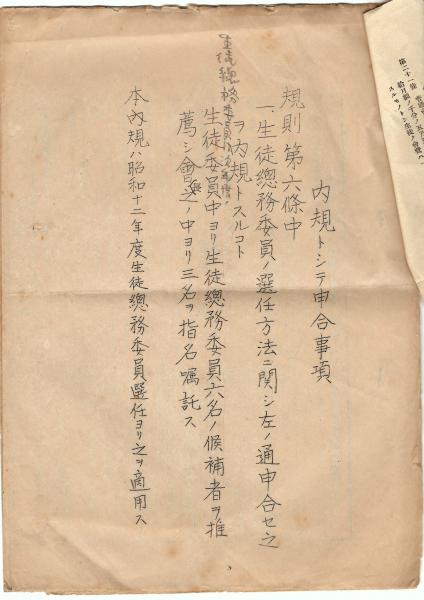 内規トシテ申合事項
規則第六條中
一、生徒總務委員ノ選任方法ニ関シ左ノ通申合セ之
ヲ内規トスルコト
生徒總務委員ハ
生徒委員中ヨリ生徒總務委員六名ノ候補者ヲ推
薦シ會長之ノ中ヨリ三名ヲ指名嘱託ス
本内規ハ昭和十二年度生徒總務委員選任ヨリ之ヲ適用ス
第二十一條
スルモノトシ